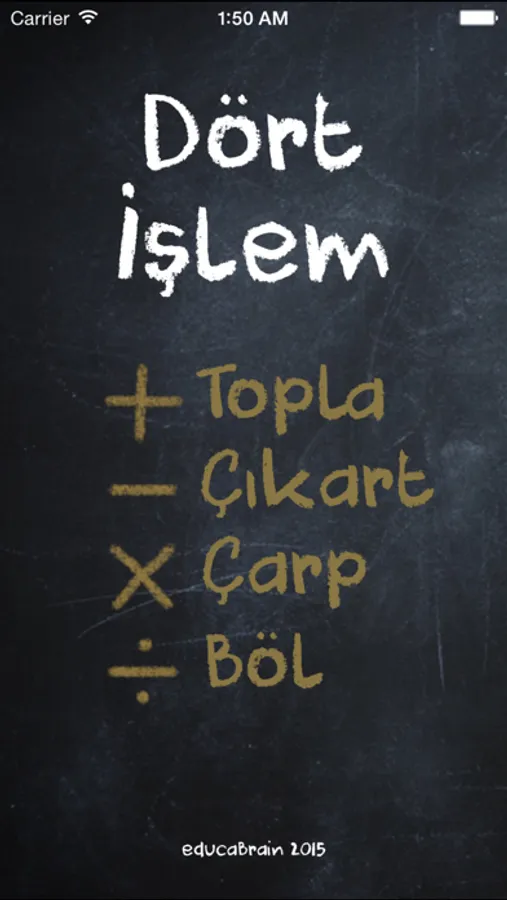 Carrier 1:50 AM
Dört
İşlem
+ Topla
- Çıkart
× Çarp
÷ Böl
educaBrain 2015